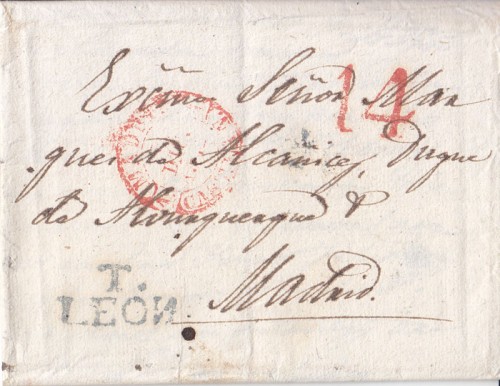 Excmo Señor Mar
ques de Alcanices, Duque
de Alburquerque &
Madrid.
14
T.
LEON